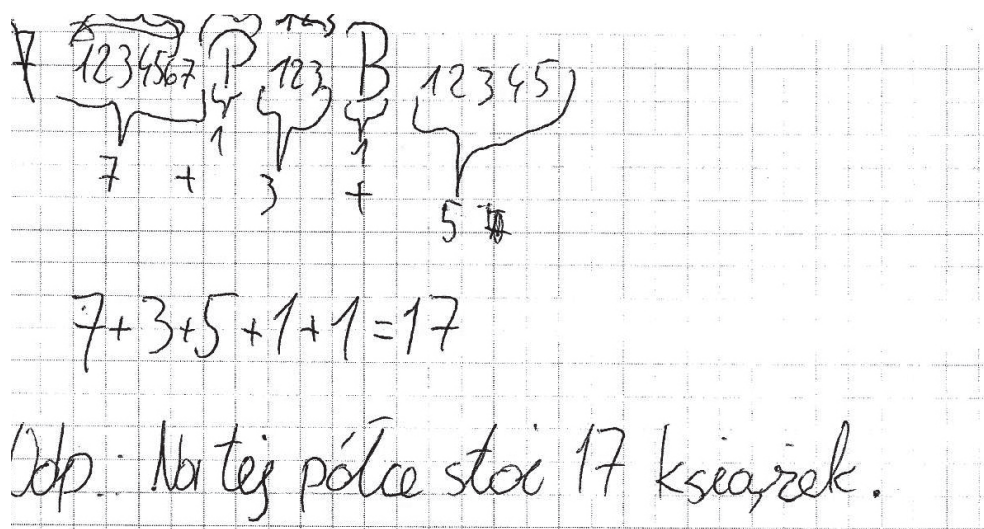 1234567 P 123 B 12345
1 1
7 + 3 + 5
7+3+5+1+1=17
Odp.: Na tej półce stoi 17 książek.